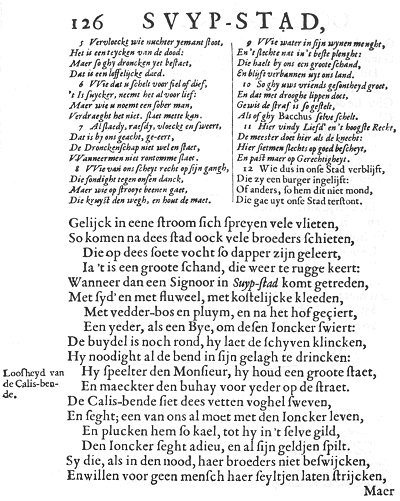 126 SVYP-STAD,
5 Vervloeckt wie nuchter yemant stoot,
Het is een teycken van de dood:
Maer so ghy droncken yet bestaet,
Dat is een loffelijcke daed.
6 VVie dat u schelt voor fiel of dief,
't Is suycker, neemt het al voor lief:
Maer wie u noemt een sober man,
Verdraeght het niet. slaet mette kan.
7 Al staedy, raesdy, vloeckt en sweert,
Dat is by ons geacht, ge-eert,
De Dronckenschap niet wel en staet,
VVanneermen niet rontomme slaet.
8 VVie van ons scheyt recht op sijn gangh,
Die sondight tegen onsen danck,
Maer wie op strooye beenen gaet,
Die kruyst den wegh, en hout de maet.
9 VVie water in sijn wynen menght,
En 't slechte nat in 't beste plenght:
Die haelt by ons een groote schand,
En blijft verbannen uyt ons land.
10 So ghy uws vriends gesontheyd groet,
En dat met drooghe lippen doet,
Gewis de straf is so gestelt,
Als of ghy Bacchus selve schelt.
11 Hier vindy Liefd' en 't hooghste Recht,
De meester doet hier als de knecht:
Hier sietmen slechts op goed bescheyt,
En past maer op Gerechtigheyt.
12 Wie dus in onse Stad verblijft,
Die zy een burger ingelijft:
Of anders, so hem dit niet mond,
Die gae uyt onse Stad terstont.
Gelijck in eene stroom sich spreyen vele vlieten,
So komen na dees stad oock vele broeders schieten,
Die op dees soete vocht so dapper zijn geleert,
Ia 't is een groote schand, die weer te rugge keert:
Wanneer dan een Signoor in Suyp-stad komt getreden,
Met syd' en met fluweel, met kostelijcke kleeden,
Met vedder-bos en pluym, en na het hof geçiert,
Een yeder, als een Bye, om desen Ioncker swiert:
De buydel is noch rond, hy laet de schyven klincken,
Hy noodight al de bend in sijn gelagh te drincken:
Hy speelter den Monsieur, hy houd een groote staet,
En maeckter den buhay voor yeder op de straet.
Loosheyd van
de Calis-ben-
de.
De Calis-bende siet dees vetten voghel sweven,
En seght; een van ons al moet met den Ioncker leven,
En plucken hem so kael, tot hy in 't selve gild,
Den Ioncker seght adieu, en al sijn geldjen spilt.
Sy die, als in den nood, haer broeders niet beswijcken,
En willen voor geen mensch haer seyltjen laten strijcken,
Maer